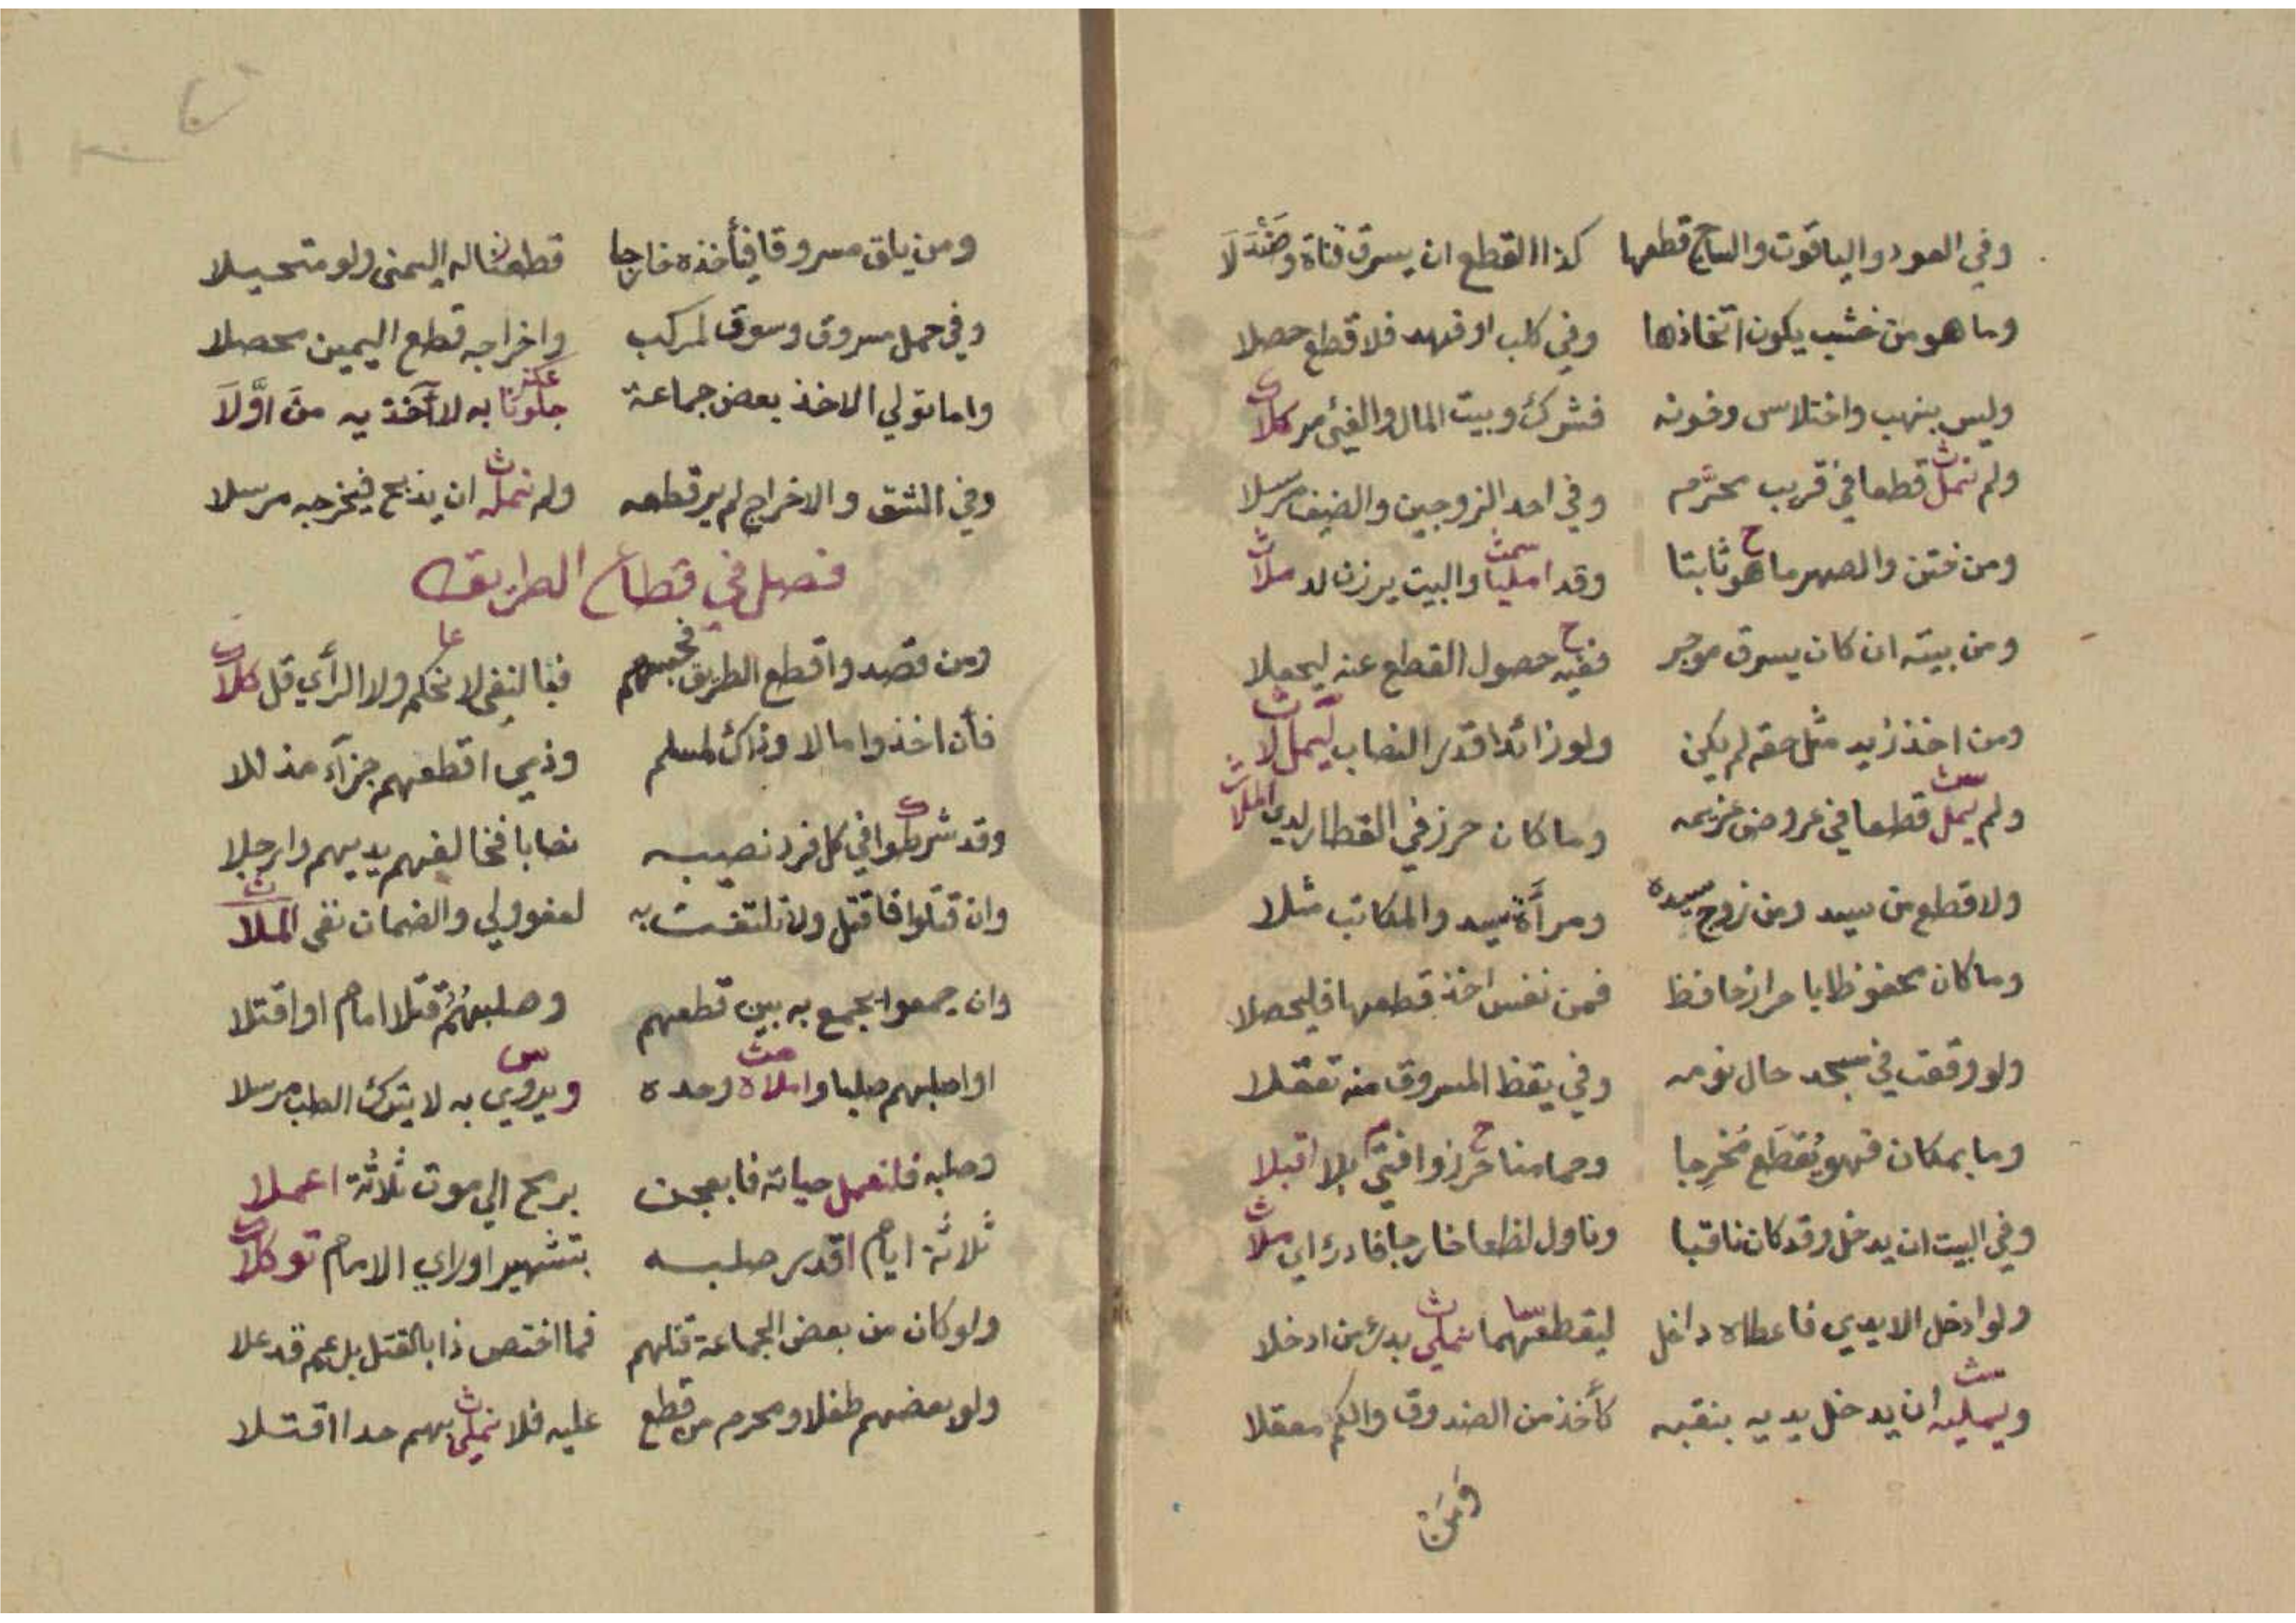 وفي العود والياقوت والساج قطعها كذا القطع ان يسرق قناة وصندلا
وما هو من خشب يكون اتخاذها وفي كلب او فهد فلا قطع حصلا
وليس بنهب واختلاس وخونه فشرك وبيت المال والفئ مر كلا
ولم نمل قطعا في قريب محرم وفي احد الزوجين والضيف مرسلا
ومن ختن والصهر ما هو ثابتا وقد امليا والبيت يرزن لد ملا
ومن بيته ان كان يسرق موجر ففيه حصول القطع عنه ليحملا
ومن اخذ زيد مثل حقه لم يكن ولو زائدا قدر النصاب ليمل لا
ولم يمل قطعا في عروض غريمه وما كان حرز في القطار لدى الملا
ولا قطع من سيد ومن زوج سيده ومرأة سيد والمكاتب مثلا
وما كان محفوظا باحراز حافظ فمن نفس اخذ قطعها فليحصلا
ولو وقعت في مسجد حال نومه وفي يقظ المسروق منه تعقلا
وما بمكان فهو يقطع مخرجا وحمامنا حرز وافتى بلا اقبلا
وفي البيت ان يدخل وقد كان ناقبا وناول لقطعا خارجا فادرؤ اي ملا
ولو ادخل الايدي فاعطاه داخل ليقطعهما نملي بدئ من ادخلا
ويمليه ان يدخل يديه بنقبه كأخذ من الصندوق والكم معقلا
ومن
ومن يلق مسروقا فيأخذه خارجا قطعنا له اليمنى ولو متحيلا
وفي حمل مسروق وسوق لمركب واخراجه قطع اليمين محصلا
واما تولي الاخذ بعض جماعة جلونا به لا آخذيه من اولا
وفي الشق والاخراج لم ير قطعه ولم نمله ان يذبح فيخرجه مرسلا
فصل في قطاع الطريق
ومن قصدوا قطع الطريق فحبسهم فبالنفي لا نحكم ولا الرأي قل كلا
فأن اخذوا مالا وذاك لمسلم وذمي اقطعهم جزآء مذللا
وقد شرطوا في كل فرد نصيبه نصابا فخالفهم يديهم وارجلا
وان قتلوا فاقتل ولا تلتفت به لعفو ولي والضمان نفى الملا
وان جمعوا يجمع به بين قطعهم وصلبهم قتلا امام او اقتلا
او اصلبهم صلبا واملاه وحده ويروي به لا يترك الصلب مرسلا
وصلبه فانعمل حياته فابعجن برمح الي موت ثلاثة اعملا
ثلاثة ايام اقدر صلبه بتشهير او راي الامام توكلا
ولو كان من بعض الجماعة قتلهم فما اختص ذا بالقتل بل عم قد علا
ولو بعضهم طفلا ومحرم من قطع عليه فلا نملي بهم حدا اقتلا